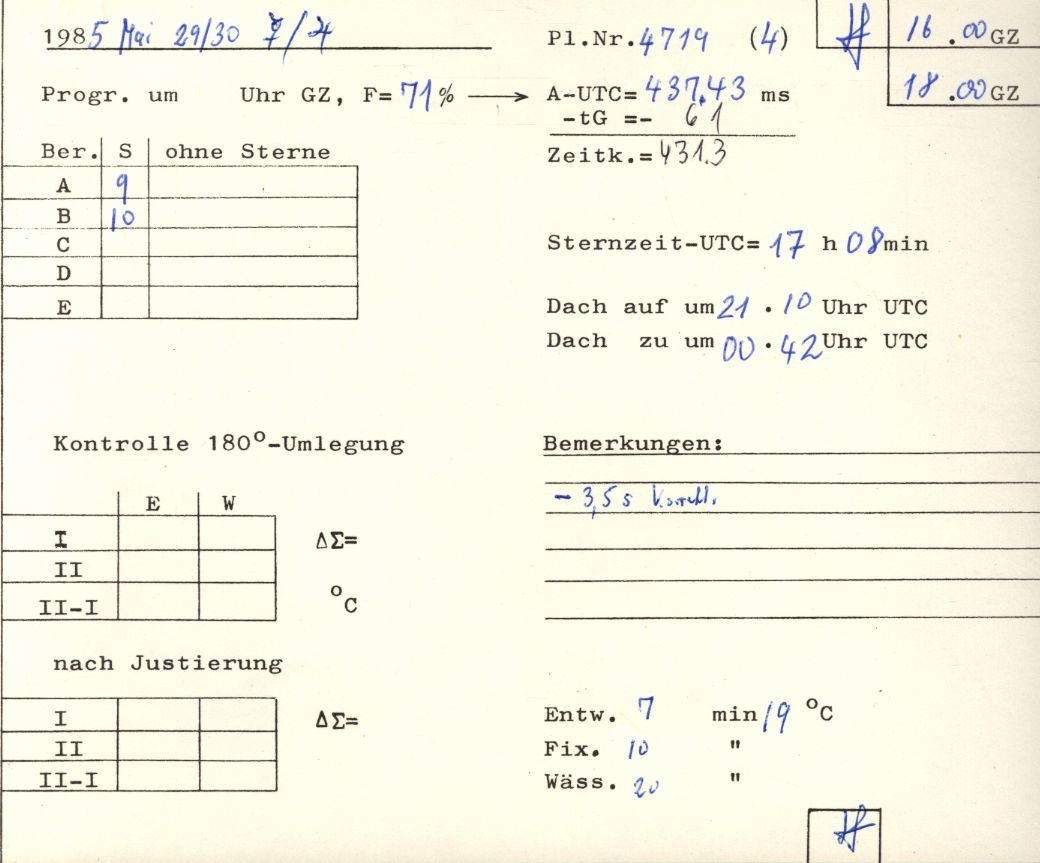 1985 Mai 29/30 Pl.Nr. 4719 (4) 16.00 GZ
18.00 GZ
Progr. um Uhr GZ, F= 71% → A-UTC= 437,43 ms
-tG =- 6 1
Zeitk.= 431.3
Ber. S ohne Sterne
A 9
B 10
C
D
E
Sternzeit-UTC= 17 h 08 min
Dach auf um 21 . 10 Uhr UTC
Dach zu um 00 . 42 Uhr UTC
Kontrolle 180°-Umlegung
E W
I ΔΣ=
II
II-I °C
Bemerkungen:
- 3,5 s
nach Justierung
I ΔΣ=
II
II-I
Entw. 7 min 19 °C
Fix. 10 "
Wäss. 20 "